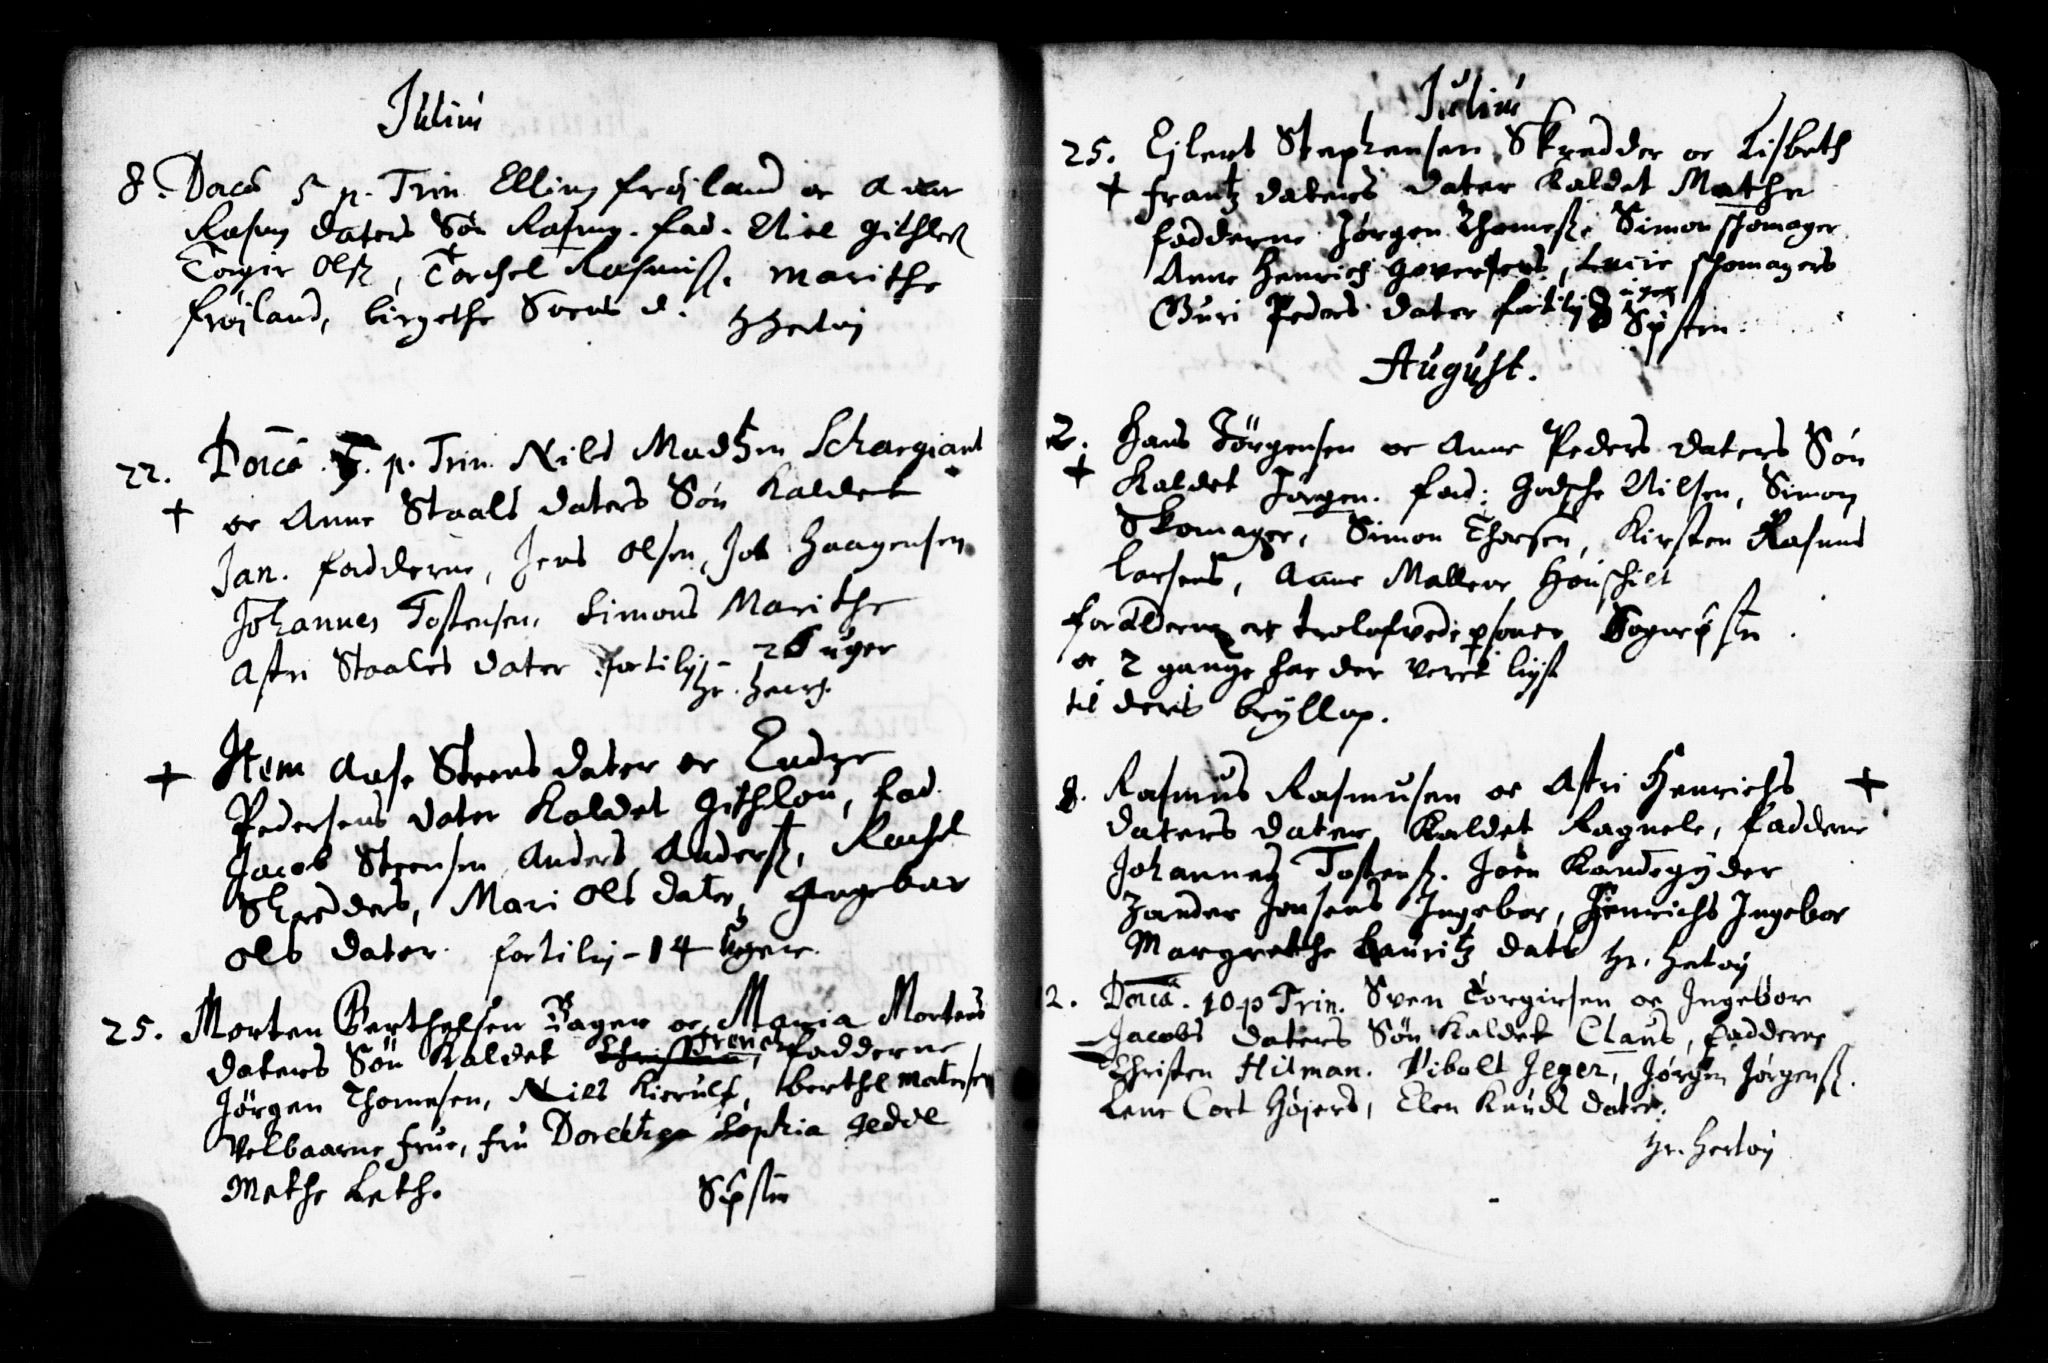 Julius
8. Docâ 5 p. Trin Elling frøjland oc Anne
Rasmus daters Søn Rasmus. fad. Eliel Githless
Torgir Olss, Torchel Rasmuss. Marithe
frøjland, birgethe Svens d. H Hertvi
22. Doicâ p. Trin. Nils Madtzen Schargiant
+ oc Anne Staals daters Søn Kaldet
Jan. fadderne, Jens Olsen, Job Haagensen
Johannes Tostensen, Simons Marithe
Astri Staales dater fortilig- 26 uger
Hr. Henr.
+ Item Aase Steens dater oc Endre
Pedersens dater Kaldet Githlou, fad.
Jacob Steensen Anders Anderss, Rachel
Skredders, Mari Ols dater, Ingebar
Ols dater. fortilig - 14 Uger.
25. Morten Berthelsen Bager oc Maria Mortens
daters Søn Kaldet fadderne
Jørgen Thomesen, Nils Kierulf, berthel Matersen
Velbaarne frue, fru Dorethea Sophia Gedde
Methe Leth. Sÿsten
Julius
25. Ejlert Stephensen Skredder oc Lisbeth
+ frantz daters dater Kaldet Mathe
fadderne Jørgen Thomess. Simon skomager
Anne Henrich Goversens, Lucie skomagers
Guri Peders dater fortilig 8 uger Sÿsten.
August.
2. Hans Jörgensen oc Anne Peders daters Søn
+ Kaldet Jörgen. fad: Godsche Nilsen, Simon
Skomager, Simon Thorsen, Kirsten Rasmus
Larsens, Anne Mallene Houschilt
foralderne ere trolofvede psoner Sogneprsten.
oc 2 gange har der veret lijst
til deris bryllop.
8. Rasmus Rasmusen oc Astri Henrichs +
daters dater Kaldet Ragnele, faddere
Johannes Tostenss. Joen Kandegyder
Zander Jensens Ingebor, Henrichs Ingebor
Margrethe Lauritz dats Hr. Hertvig
2. Doicâ. 10 p Trin. Sven Torgirsen oc Ingebör
Jacobs daters Søn Kaldet Claus, fadderne
Christen Hitman. Vibolt Jeger, Jørgen Jørgenss.
Lene Cort Højers, Elen Knuds dater.
Hr. Hertvig